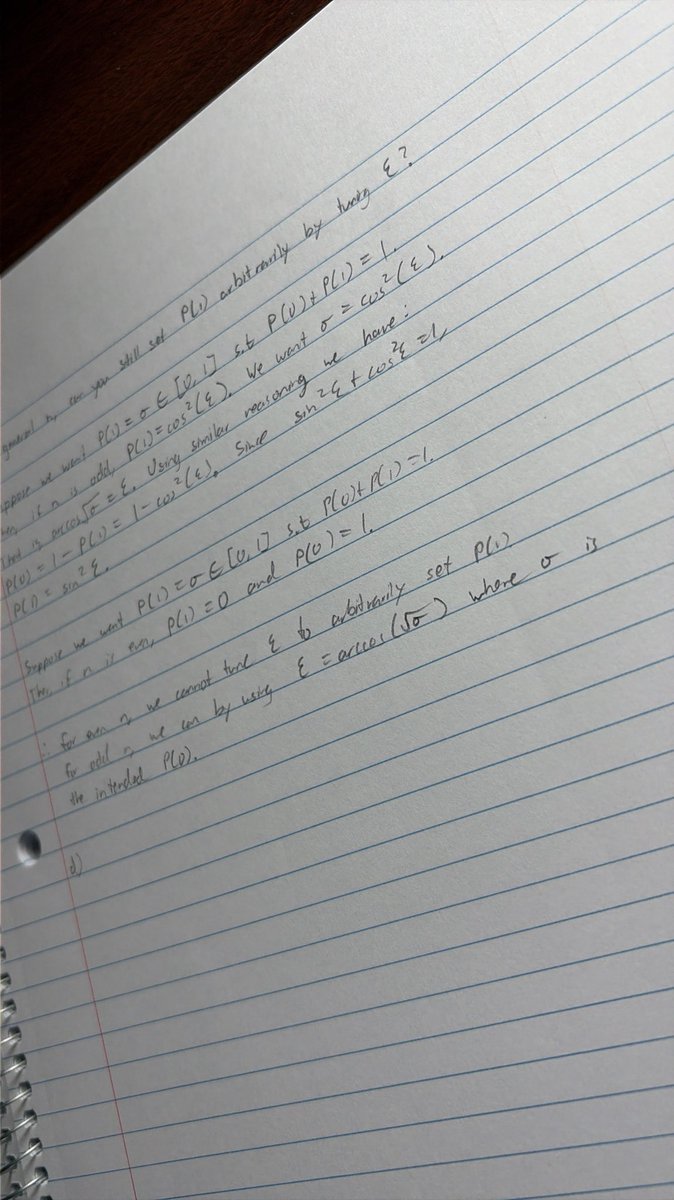 general n, can you still set P(1) arbitrarily by tuning ξ?
suppose we want P(1) = σ ∈ [0,1] s.t. P(0) + P(1) = 1.
Then, if n is odd, P(1) = cos²(ξ). We want σ = cos²(ξ).
That is arccos√σ = ξ. Using similar reasoning we have:
P(0) = 1 - P(1) = 1 - cos²(ξ). Since sin²ξ + cos²ξ = 1,
P(1) = sin²ξ.
Suppose we want P(1) = σ ∈ [0,1] s.t. P(0) + P(1) = 1.
Then if n is even, P(1) = 0 and P(0) = 1.
∴ for even n, we cannot tune ξ to arbitrarily set P(1)
for odd n, we can by using ξ = arccos(√σ) where σ is
the intended P(0).
d)